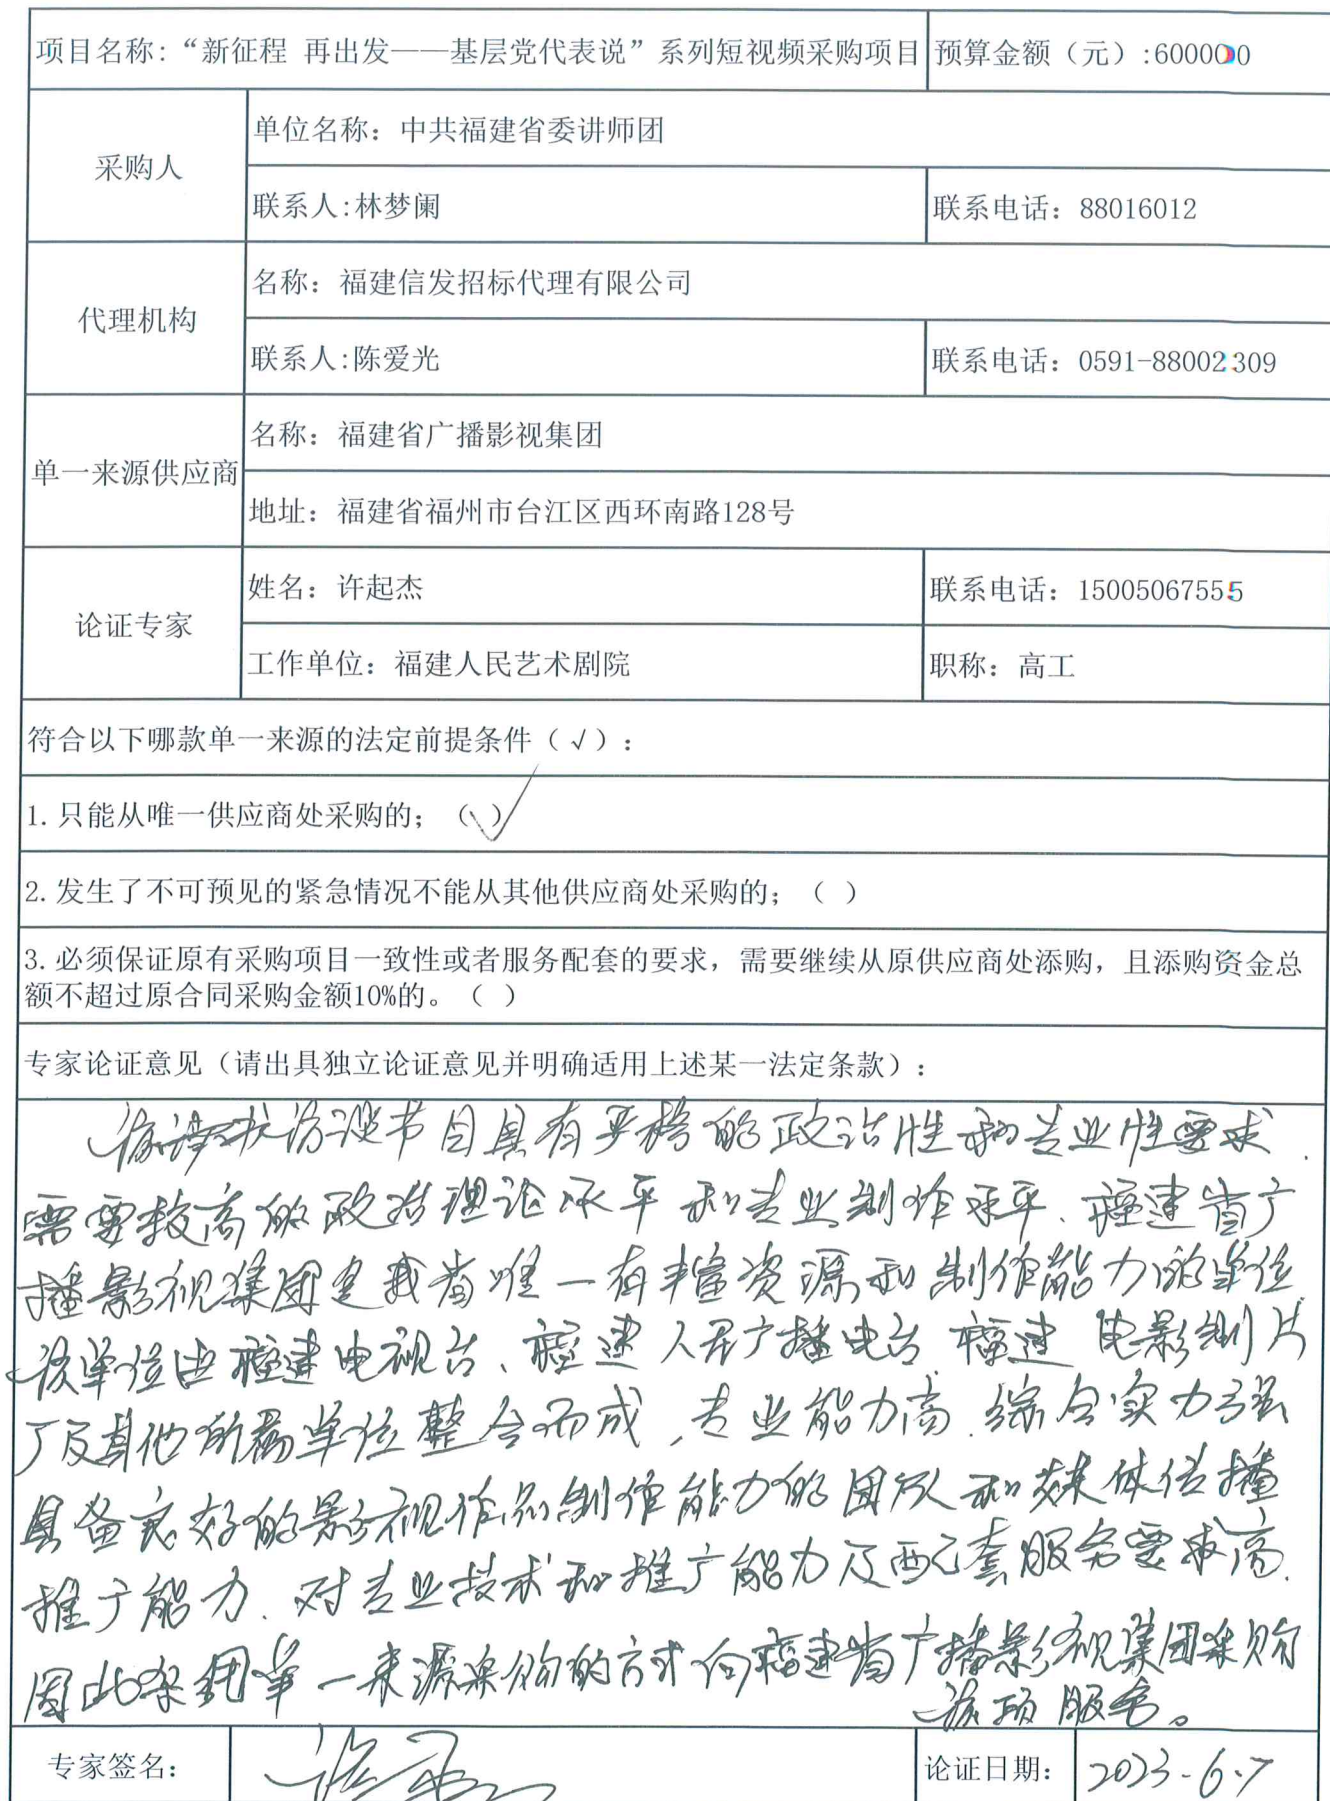 项目名称:“新征程 再出发——基层党代表说”系列短视频采购项目 预算金额（元）:600000
采购人
单位名称：中共福建省委讲师团
联系人:林梦阑 联系电话：88016012
代理机构
名称：福建信发招标代理有限公司
联系人:陈爱光 联系电话：0591-88002309
单一来源供应商
名称：福建省广播影视集团
地址：福建省福州市台江区西环南路128号
论证专家
姓名：许起杰 联系电话：15005067555
工作单位：福建人民艺术剧院 职称：高工
符合以下哪款单一来源的法定前提条件（√）：
1.只能从唯一供应商处采购的；（√）
2.发生了不可预见的紧急情况不能从其他供应商处采购的；（ ）
3.必须保证原有采购项目一致性或者服务配套的要求，需要继续从原供应商处添购，且添购资金总
额不超过原合同采购金额10%的。（ ）
专家论证意见（请出具独立论证意见并明确适用上述某一法定条款）：
访谈节目具有严格的政治性和专业性要求.
需要较高的政治理论水平和专业制作水平、福建省广
播影视集团是我省唯一有丰富资源和制作能力的单位
该单位由福建电视台、福建人民广播电台 福建电影制片
厂及其他所属单位整合而成,专业能力高.综合实力强
具备良好的影视作品制作能力的团队和媒体传播
推广能力.对专业技术和推广能力及配套服务要求高.
因此采用单一来源采购的方式向福建省广播影视集团采购
该项服务。
专家签名： 论证日期： 2023.6.7